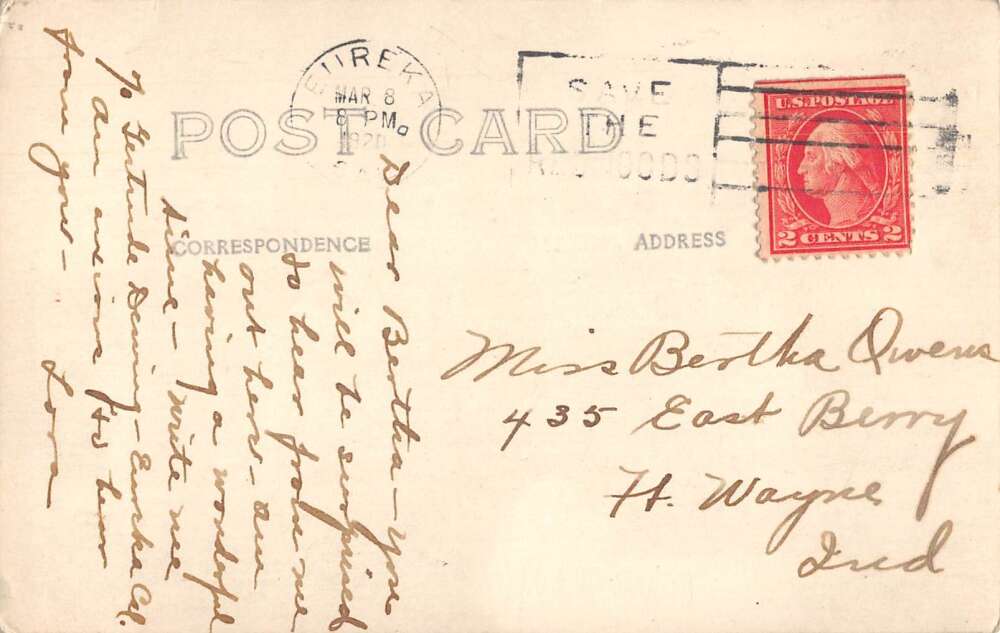 POST CARD
EUREKA
MAR 8
8 PM
1920
SAVE
THE
REDWOODS
U.S. POSTAGE
2 CENTS 2
CORRESPONDENCE
ADDRESS
Dear Bertha - You
will be surprised
to hear from me
out here - am
having a wonderful
time - write me
To Gertrude Deming - Eureka Cal.
am anxious to hear
from you -
Lora
Miss Bertha Owens
435 East Berry
Ft. Wayne
Ind